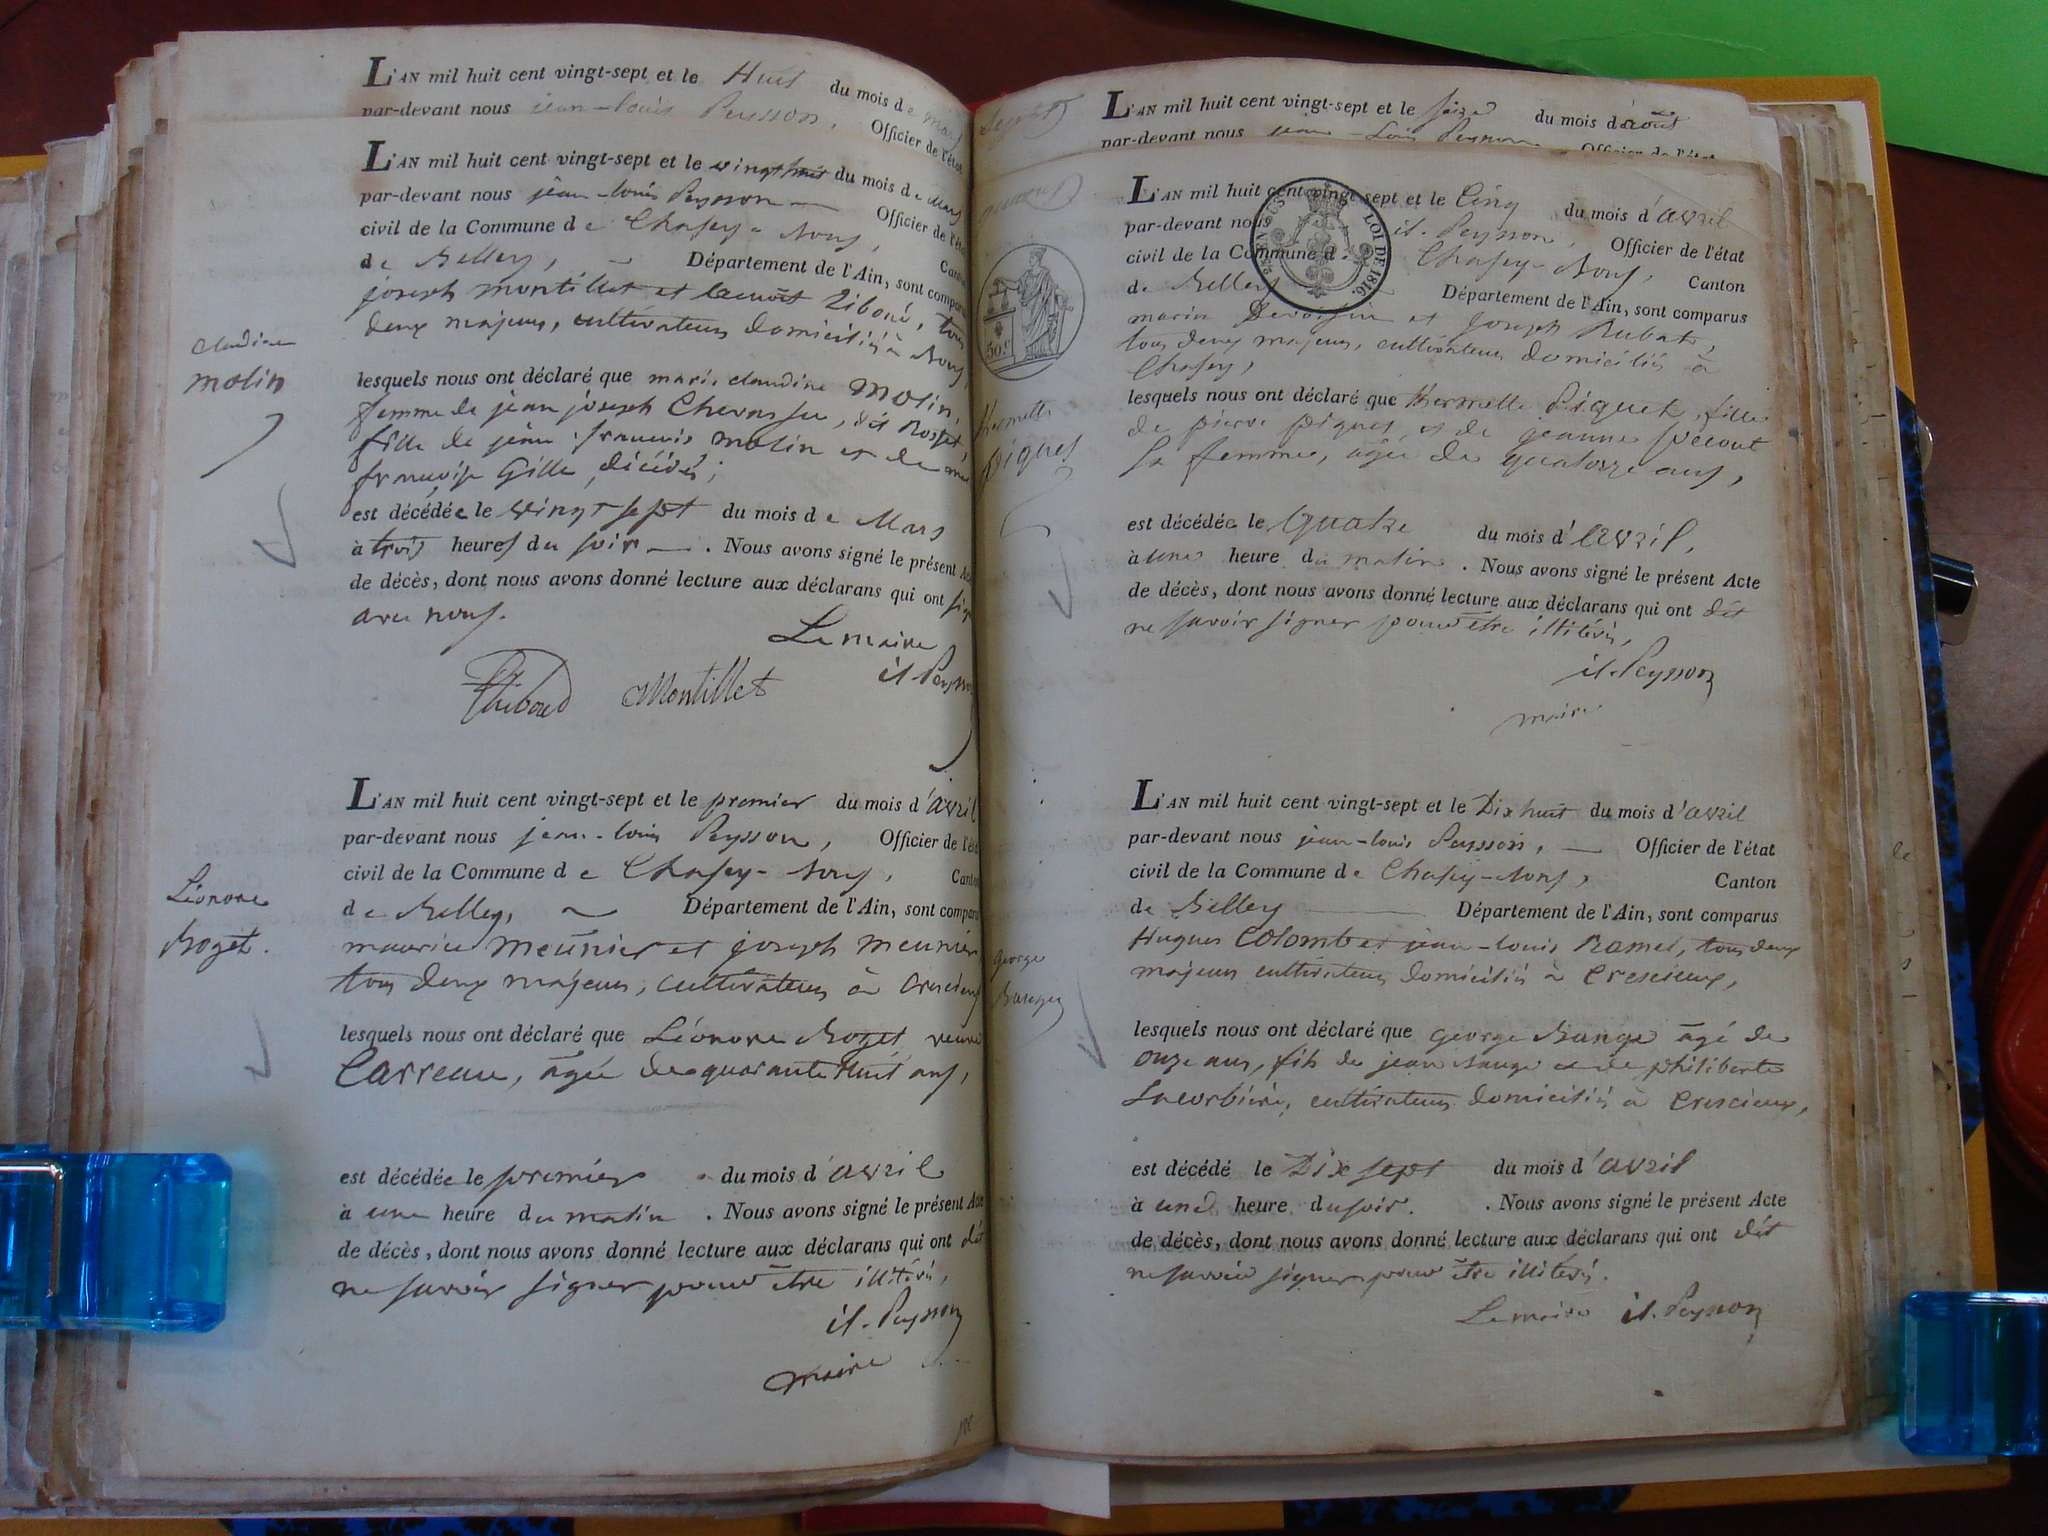 L'AN mil huit cent vingt-sept et le Huit du mois de Mars
par-devant nous jean-louis Peysson, Officier de l'état
L'AN mil huit cent vingt-sept et le vingt huit du mois de Mars
par-devant nous jean-louis Peysson Officier de l'état
civil de la Commune de Chazey-Bons, Canton
de Belley, Département de l'Ain, sont comparus
joseph montillet et benoît Tiboud, tous
deux majeurs, cultivateurs domiciliés à Bons,
claudine
molin
lesquels nous ont déclaré que marie claudine molin,
femme de jean joseph Chevassu, dit Rosset,
fille de jean françois molin et de
françoise Gille, décédés;
est décédée le vingt sept du mois de Mars
à trois heures du soir. Nous avons signé le présent Acte
de décès, dont nous avons donné lecture aux déclarans qui ont signé
avec nous.
Le maire
Thiboud Montillet jl. Peysson
L'AN mil huit cent vingt-sept et le premier du mois d'avril
par-devant nous jean-louis Peysson, Officier de l'état
civil de la Commune de Chazey-Bons, Canton
Léonore
Bozet.
de Belley, Département de l'Ain, sont comparus
maurice meunier et joseph meunier
tous deux majeurs, cultivateurs à Crescieux
lesquels nous ont déclaré que Léonore Bozet veuve
Carreau, âgée de quarante huit ans,
est décédée le premier du mois d'avril
à une heure du matin. Nous avons signé le présent Acte
de décès, dont nous avons donné lecture aux déclarans qui ont dit
ne savoir signer pour être illitérés,
jl. Peysson
maire
L'AN mil huit cent vingt-sept et le seize du mois d'août
par-devant nous jean-louis Peysson Officier de l'état
L'AN mil huit cent vingt-sept et le Cinq du mois d'avril
par-devant nous jl. Peysson, Officier de l'état
civil de la Commune d Chazey-Bons, Canton
de Belley Département de l'Ain, sont comparus
LOI DE 1816.
50c
marin et joseph Rubat,
tous deux majeurs, cultivateurs domiciliés à
Chazey,
Thermette
piquet
lesquels nous ont déclaré que thermette Piquet, fille
de pierre piquet et de jeanne pecout
sa femme, âgée de quatorze ans,
est décédée le Quatre du mois d'avril,
à une heure du matin. Nous avons signé le présent Acte
de décès, dont nous avons donné lecture aux déclarans qui ont dit
ne savoir signer pour être illitérés,
jl. Peysson
maire
L'AN mil huit cent vingt-sept et le Dix huit du mois d'avril
par-devant nous jean-louis Peysson, Officier de l'état
civil de la Commune de Chazey-Bons, Canton
de Belley Département de l'Ain, sont comparus
george
Bauge
Hugues Colomb et jean-louis Ramel, tous deux
majeurs cultivateurs domiciliés à Crescieux,
lesquels nous ont déclaré que george Bauge âgé de
onze ans, fils de jean Bauge et de philiberte
Lacorbière, cultivateurs domiciliés à Crescieux,
est décédé le Dix sept du mois d'avril
à une heure du soir. Nous avons signé le présent Acte
de décès, dont nous avons donné lecture aux déclarans qui ont dit
ne savoir signer pour être illitérés.
Le maire jl. Peysson